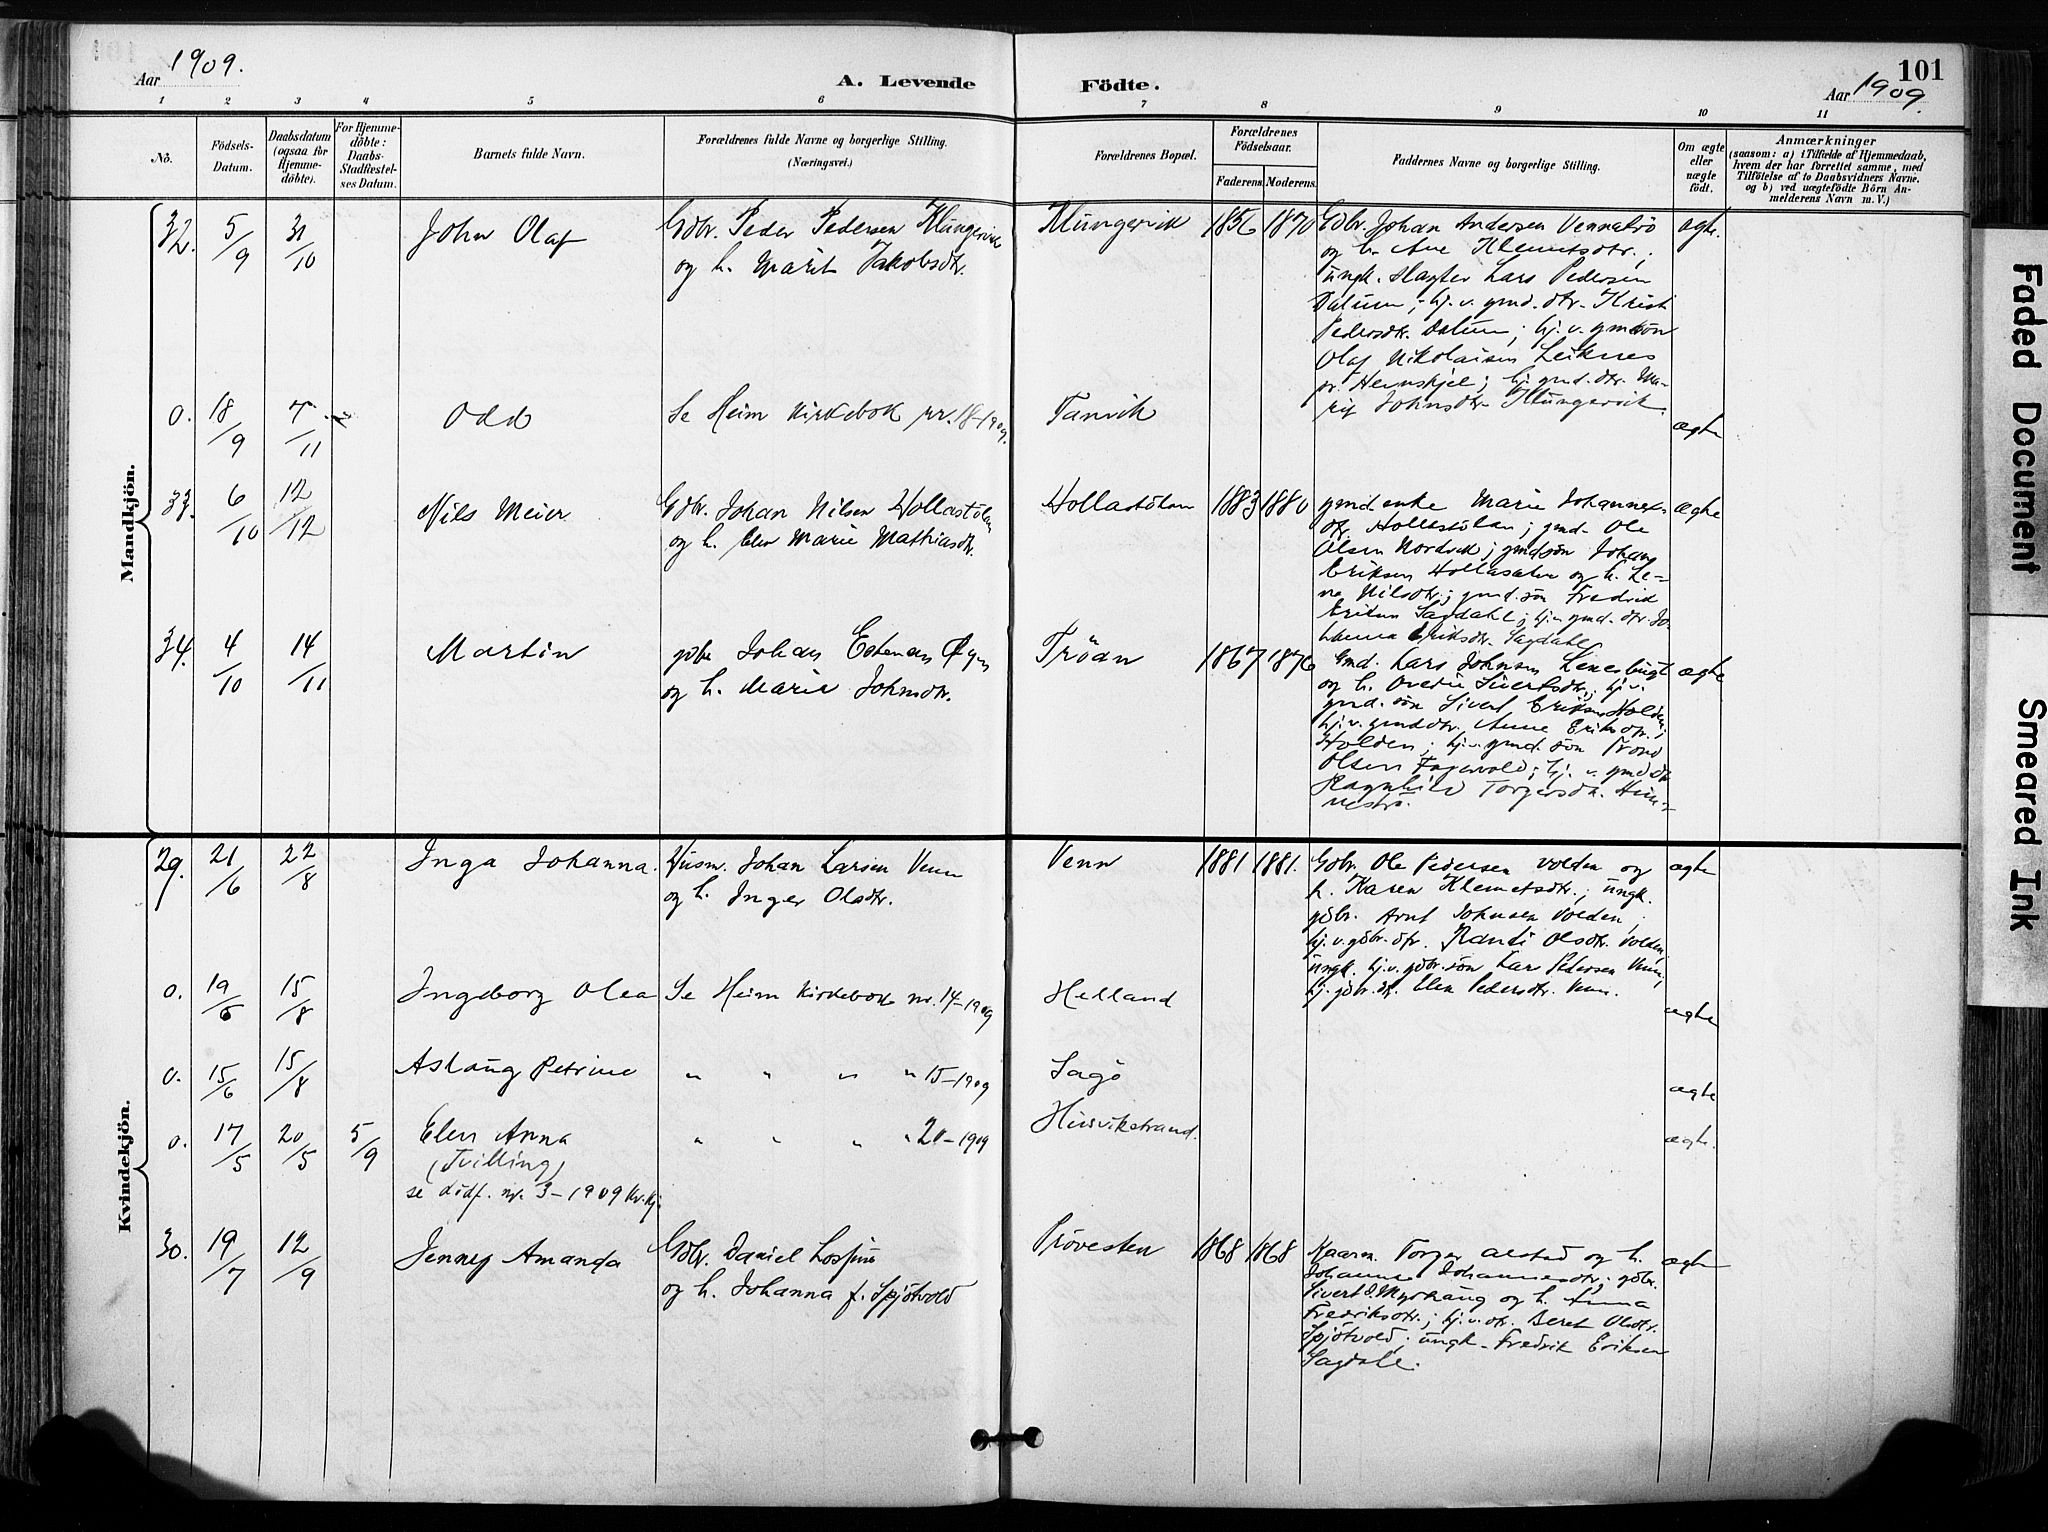 101
Aar 1909.
A. Levende Födte.
Aar 1909.
1 2 3 4 5 6 7 8 9 10 11
No.
Födsels-
Datum.
Daabsdatum
(ogsaa for
Hjemme-
döbte).
For Hjemme-
döbte:
Daabs-
Stadfæstel-
ses Datum.
Barnets fulde Navn.
Forældrenes fulde Navne og borgerlige Stilling.
(Næringsvei.)
Forældrenes Bopæl.
Forældrenes
Födselsaar.
Faderens. Moderens.
Faddernes Navne og borgerlige Stilling.
Om ægte
eller
uægte
födt.
Anmærkninger
(saasom: a) i Tilfælde af Hjemmedaab,
hvem der har forrettet samme, med
Tilföielse af to Daabsvidners Navne,
og b) ved uægtefödte Börn An-
melderens Navn m. V.)
Mandkjön.
32. 5/9 31/10 John Olaf
Gdbr. Peder Pedersen Klungervik
og h. Marit Jakobsdtr.
Klungervik 1856 1870
Gdbr. Johan Andersen Vennatrö
og h. Ane Klemetsdtr.;
ungk. slagter Lars Pedersen
Dalum; hj. v. gmd. dtr. Kristi
Pedersdtr. Dalum; hj. v. gmd sön
Olaf Nikolaisen Leiknes
pr. Hemskjel; hj. gmd. dtr. Ma-
rit Johnsdtr. Klungervik.
ægte.
0. 18/9 7/11 Odd
Se Heim Kirkebok nr. 18-1909.
Tanvik
ægte
33. 6/10 12/12 Nils Meier
Gdbr. Johan Nilsen Hollastölan
og h. Elen Marie Mathiasdtr.
Hollastölan 1883 1880
gmd. enke Marie Johannes-
dtr. Hollastölan; gmd. Ole
Olsen Nordvik; gmd sön Johan
Eriksen Hollasæter og h. Le-
na Nilsdtr.; gmd. sön Fredrik
Eriksen Sagdahl; hj. v. gmd. dtr. Jo-
hanna Eriksdtr. Sagdahl.
ægte
34. 4/10 14/11 Martin
gdbr Johan Estensen Öyen
og h. Marie Johnsdtr.
Tröan 1867 1876
Gmd. Lars Johnsen Lenesbugt
og h. Ovedie Sivertsdtr.; hj. v.
gmd. sön Sivert Eriksen Holden;
hj. v. gmd dtr. Anne Eriksdtr.
Holden; hj. v. gmd. sön Trond
Olsen Fagervold; hj. v. gmd dtr
Ragnhild Torgersdtr.
ægte
Kvindekjön.
29. 21/6 22/8 Inga Johanna.
Husm. Johan Larsen Venn
og h. Inger Olsdtr.
Venn 1881 1881.
Gdbr. Ole Pedersen Volden og
h. Karen Klemetsdtr.; ungk.
gdbr. Arnt Johnsen Volden;
hj. v. gdbr. dtr. Randi Olsdtr. Volden,
ungk. hj. v. gdbr. sön Lars Pedersen Venn,
hj. gdbr. dtr. Elen Pedersdtr. Venn.
ægte
0. 19/6 15/8 Ingeborg Olea
Se Heim Kirkebok nr. 14-1909
Helland
ægte
0. 15/6 15/8 Aslaug Petrine
" " " " 15-1909
Sagö
ægte
0. 17/5 20/5 5/9 Elen Anna
(Tvilling)
se dödf. nr. 3-1909 Kv.kj.
" " " " 20-1909
Husvikstrand.
ægte.
30. 19/7 12/9 Jenney Amanda
Gdbr. Daniel Losjius
og h. Johanna f. Spjötvold
Prövesten 1868 1868
Kaarm. Torger Alstad og h.
Johanna Johannesdtr; gdbr.
Sivert J. Myrhaug og h. Anna
Fredriksdtr.; hj. v. dtr. Beret Olsdtr.
Spjötvold; ungk. Fredrik Eriksen
Sagdale.
ægte
Faded Document
Smeared Ink